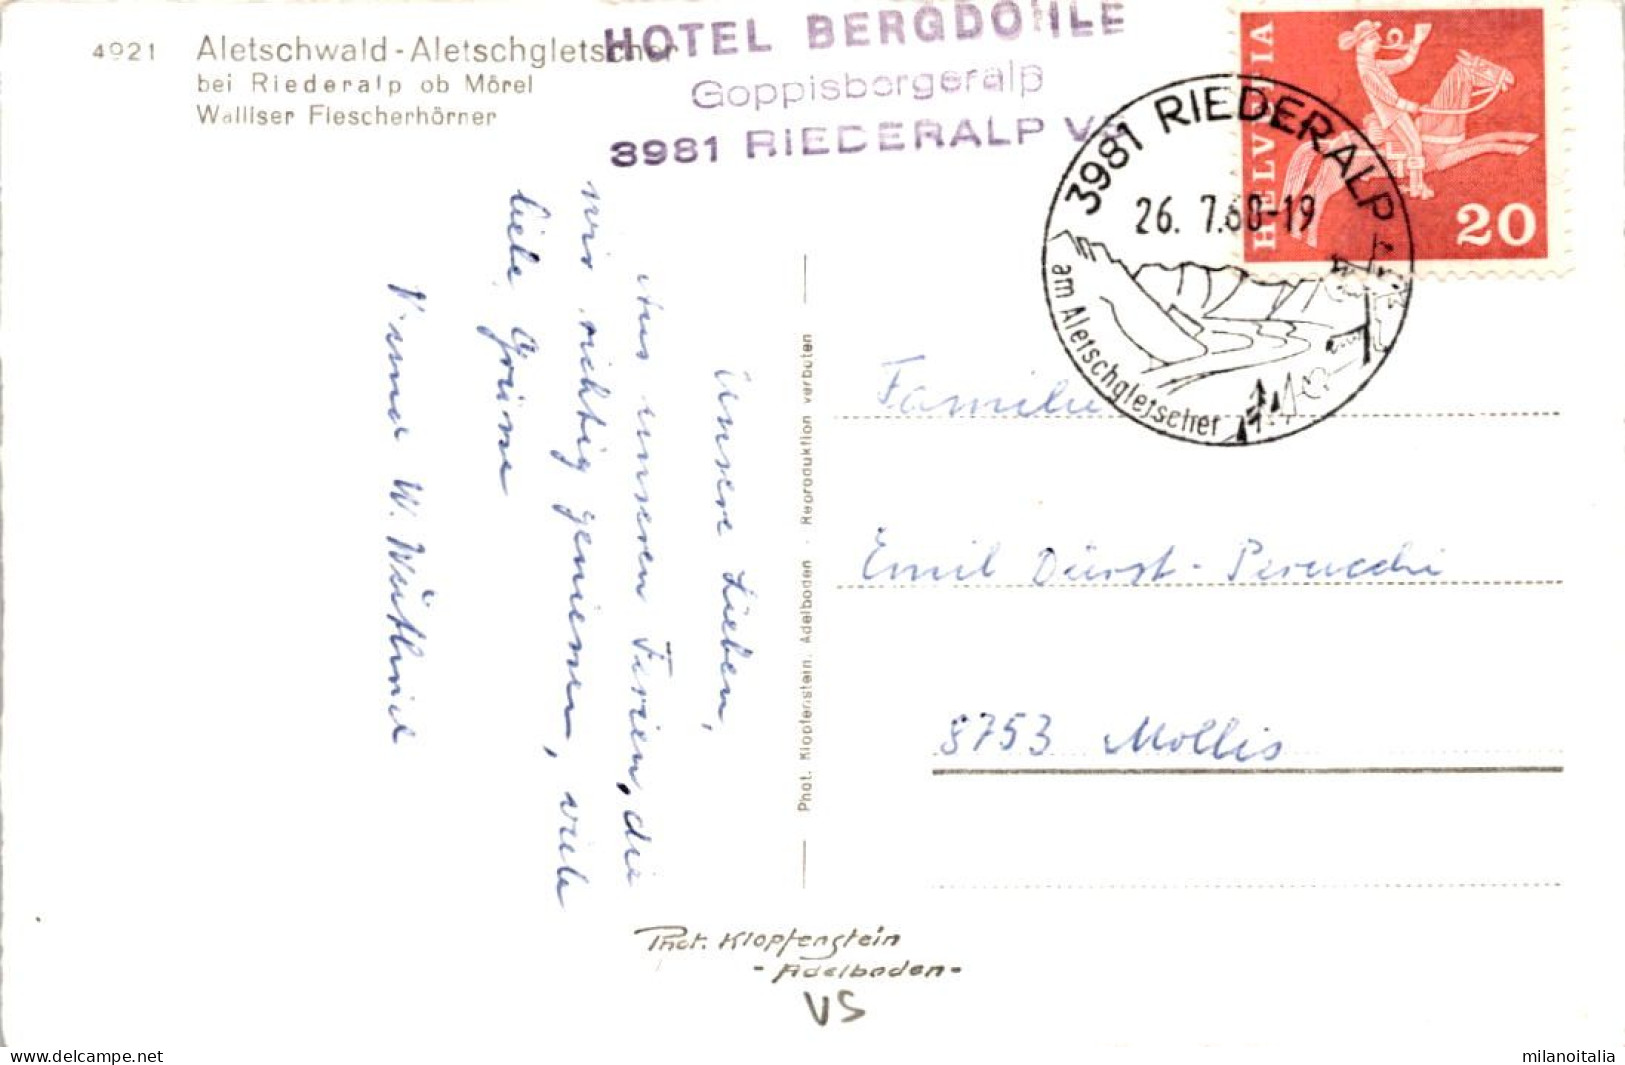 4921 Aletschwald - Aletschgletscher
bei Riederalp ob Mörel
Walliser Fiescherhörner
HOTEL BERGDOHLE
Goppisbergeralp
3981 RIEDERALP VS
HELVETIA
20
3981 RIEDERALP
26. 7.68-19
am Aletschgletscher
Unsere Lieben,
Aus unseren Ferien, die
wir richtig geniessen, viele
liebe Grüsse
W. Wüthrich
Phot. Klopfenstein, Adelboden - Reproduktion verboten
Familie
Emil Dürst-Perucchi
8753 Mollis
Phot. Klopfenstein
- Adelboden -
VS
www.delcampe.net
milanoitalia